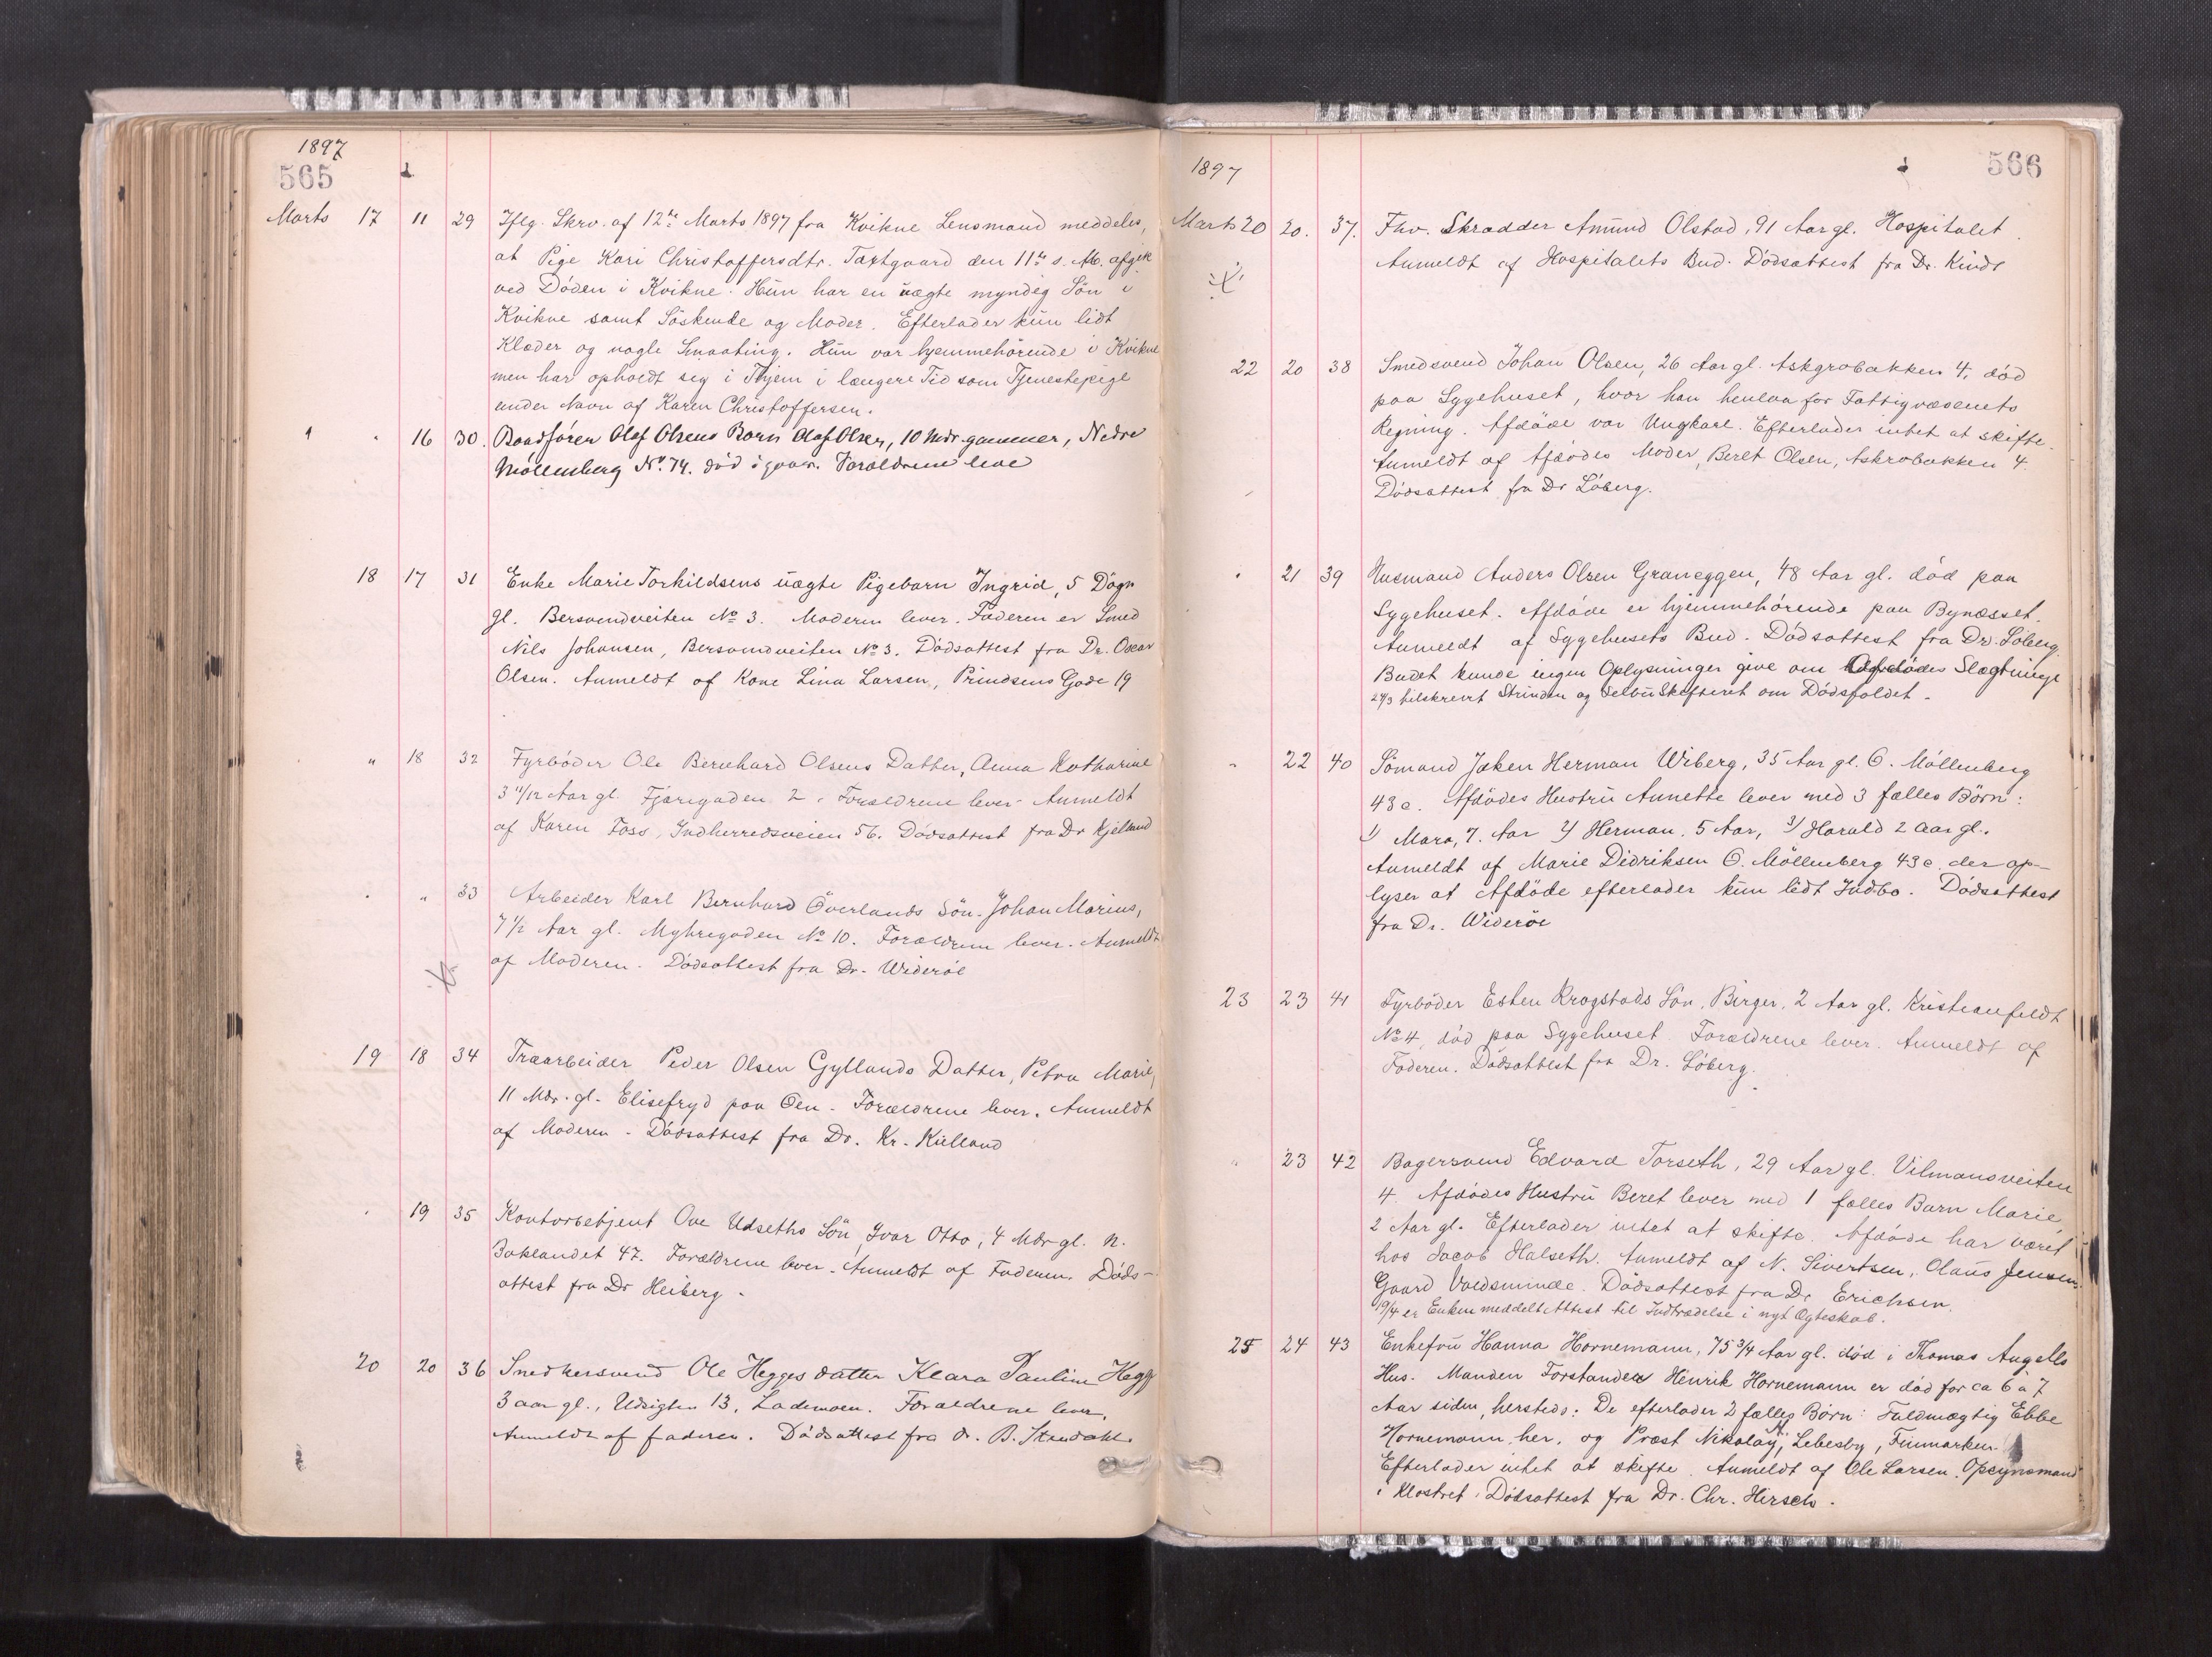 1897
565
Marts 17 11 29 Iflg. Skrv. af 12te Marts 1897 fra Kvikne Lensmand meddeles,
at Pige Kari Christoffersdtr. Taxtgaard den 11te s. M. afgik
ved Döden i Kvikne. Hun har en uægte myndig Sön i
Kvikne samt Söskende og Moder. Efterlader kun lidt
Klæder og nogle Smaating. Hun var hjemmehörende i Kvikne
men har opholdt sig i Thjem i længere Tid som Tjenestepige
under Navn af Karen Christoffersen.
" 16 30. Baadförer Olaf Olsens Barn Olaf Olsen, 10 Mdr. gammer, Nedre
Möllenberg No. 74. död igaar. Forældrene leve
18 17 31 Enke Marie Torkildsens uægte Pigebarn Ingrid, 5 Dögn
gl. Bersvendveiten No 3. Moderen lever. Faderen er Smed
Nils Johansen, Bersvendveiten No 3. Dödsattest fra Dr. Oscar
Olsen. Anmeldt af Kone Lina Larsen, Prindsens Gade 19
" 18 32 Fyrböder Ole Bernhard Olsens Datter, Anna Katharine
3 11/12 Aar gl. Fjæregaden 2. Forældrene lever. Anmeldt
af Karen Foss, Indherredsveien 56. Dödsattest fra Dr Kjelland
" " 33 Arbeider Karl Bernhard Överlands Sön, Johan Marius,
7 1/2 Aar gl. Myhregaden No 10. Forældrene lever. Anmeldt
af Moderen. Dödsattest fra Dr. Wideröe
19 18 34 Træarbeider Peder Olsen Gyllands Datter, Petra Marie,
11 Mdr. gl. Elisefryd paa Öen. Forældrene lever. Anmeldt
af Moderen. Dödsattest fra Dr. Kr. Kielland
" 19 35 Kontorbetjent Ove Udseths Sön, Ivar Otto, 4 Mdr gl. N.
Baklandet 47. Forældrene lever. Anmeldt af Faderen. Döds-
attest fra Dr Heiberg.
20 20 36 Snedkersvend Ole Hegges datter Klara Pauline Hegge
3 aar gl., Udsigten 13, Lademoen. Forældrene lever.
Anmeldt af faderen. Dödsattest fra Dr. B. Stendahl.
1897
566
Marts 20 20. 37. Fhv. Skrædder Amund Olstad, 91 Aar gl. Hospitalet.
Anmeldt af Hospitalets Bud. Dödsattest fra Dr. Kindt
22 20 38 Smedsvend Johan Olsen, 26 Aar gl. Askgrobakken 4, död
paa Sygehuset, hvor han henlaa for Fattigvæsenets
Regning. Afdöde var Ungkarl. Efterlader intet at skifte.
Anmeldt af Afdödes Moder, Beret Olsen, Askrobakken 4.
Dödsattest fra Dr Löberg.
" 21 39 Husmand Anders Olsen Graneggen, 48 Aar gl. död paa
Sygehuset. Afdöde er hjemmehörende paa Bynæsset.
Anmeldt af Sygehusets Bud. Dödsattest fra Dr. Löberg.
Budet kunde ingen Oplysninger give om Afdödes Slægtninge
24/3 tilskrevet Strinden og Selbu Skifteret om Dödsfaldet.
" 22 40 Sömand Jaken Herman Wiberg, 35 Aar gl. Ö. Möllenberg
43 c. Afdödes Hustru Annette lever med 3 fælles Börn:
1) Mara, 7. Aar 2) Herman, 5 Aar, 3) Harald 2 aar gl.
Anmeldt af Marie Didriksen Ö. Möllenberg 43 c. der op-
lyser at Afdöde efterlader kun lidt Indbo. Dödsattest
fra Dr. Wideröe
23 23 41 Fyrböder Esten Krogstads Sön, Birger, 2 Aar gl. Kristianfeldt
No 4, död paa Sygehuset. Forældrene lever. Anmeldt af
Faderen. Dödsattest fra Dr. Löberg.
" 23 42 Bagersvend Edvard Torseth, 29 Aar gl. Vilmansveiten
4. Afdödes Hustru Beret lever med 1 fælles Barn Marie,
2 Aar gl. Efterlader intet at skifte. Afdöde har været
hos Jacob Halseth. Anmeldt af N. Sivertsen, Olaus Jensens
Gaard Voldsminde. Dödsattest fra Dr Erichsen.
19/4 er Enken meddelt Attest til Indtrædelse i nyt Ægteskab.
25 24 43 Enkefru Hanna Hornemann, 75 3/4 Aar gl. död i Thomas Angells
Hus. Manden Forstander Henrik Hornemann er död for ca 6 à 7
Aar siden, hersteds. De efterlader 2 fælles Börn: Fuldmægtig Ebbe
Hornemann, her, og Præst Nikolay H, Lebesby, Finmarken.
Efterlader intet at skifte. Anmeldt af Ole Larsen, Opsynsmand
i Klostret. Dödsattest fra Dr. Chr. Hirsch.